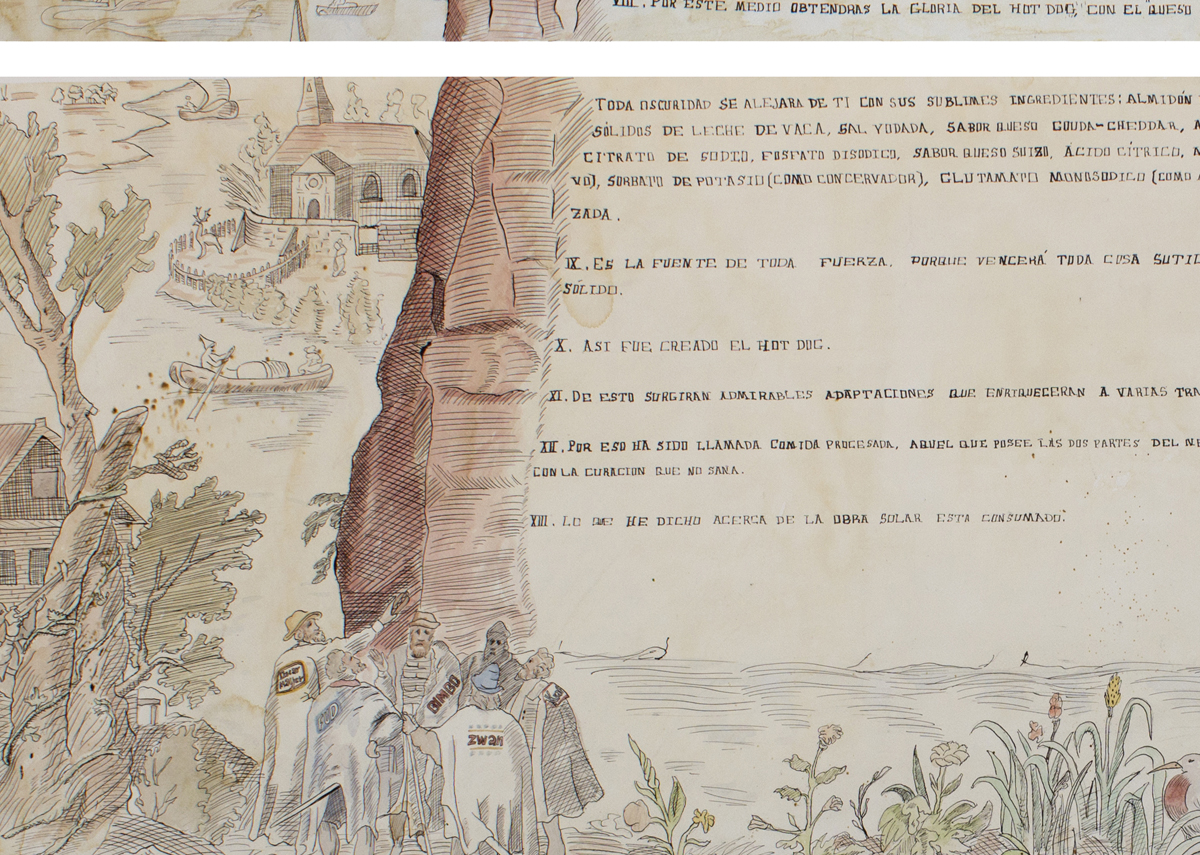 VIII. POR ESTE MEDIO OBTENDRAS LA GLORIA DEL HOT DOG, CON EL QUESO
TODA OSCURIDAD SE ALEJARA DE TI CON SUS SUBLIMES INGREDIENTES: ALMIDÓN
SÓLIDOS DE LECHE DE VACA, SAL YODADA, SABOR QUESO GOUDA-CHEDDAR,
CITRATO DE SODIO, FOSFATO DISODICO, SABOR QUESO SUIZO, ÁCIDO CÍTRICO,
VO), SORBATO DE POTASIO (COMO CONCERVADOR), GLUTAMATO MONOSODICO (COMO
ZADA.
IX. ES LA FUENTE DE TODA FUERZA. PORQUE VENCERÁ TODA COSA SUTIL
SÓLIDO.
X. ASI FUE CREADO EL HOT DOG.
XI. DE ESTO SURGIRAN ADMIRABLES ADAPTACIONES QUE ENRIQUECERAN A VARIAS TRA
XII. POR ESO HA SIDO LLAMADA COMIDA PROCESADA, AQUEL QUE POSEE LAS DOS PARTES DEL NE
CON LA CURACION QUE NO SANA.
XIII. LO QUE HE DICHO ACERCA DE LA OBRA SOLAR ESTA CONSUMADO.
BIMBO
FUD
zwan